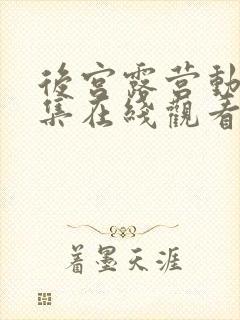 後宮露营動
集在綫觀看
着墨天涯